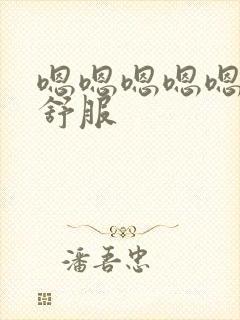 嗯嗯嗯嗯嗯
舒服
潘吾忠